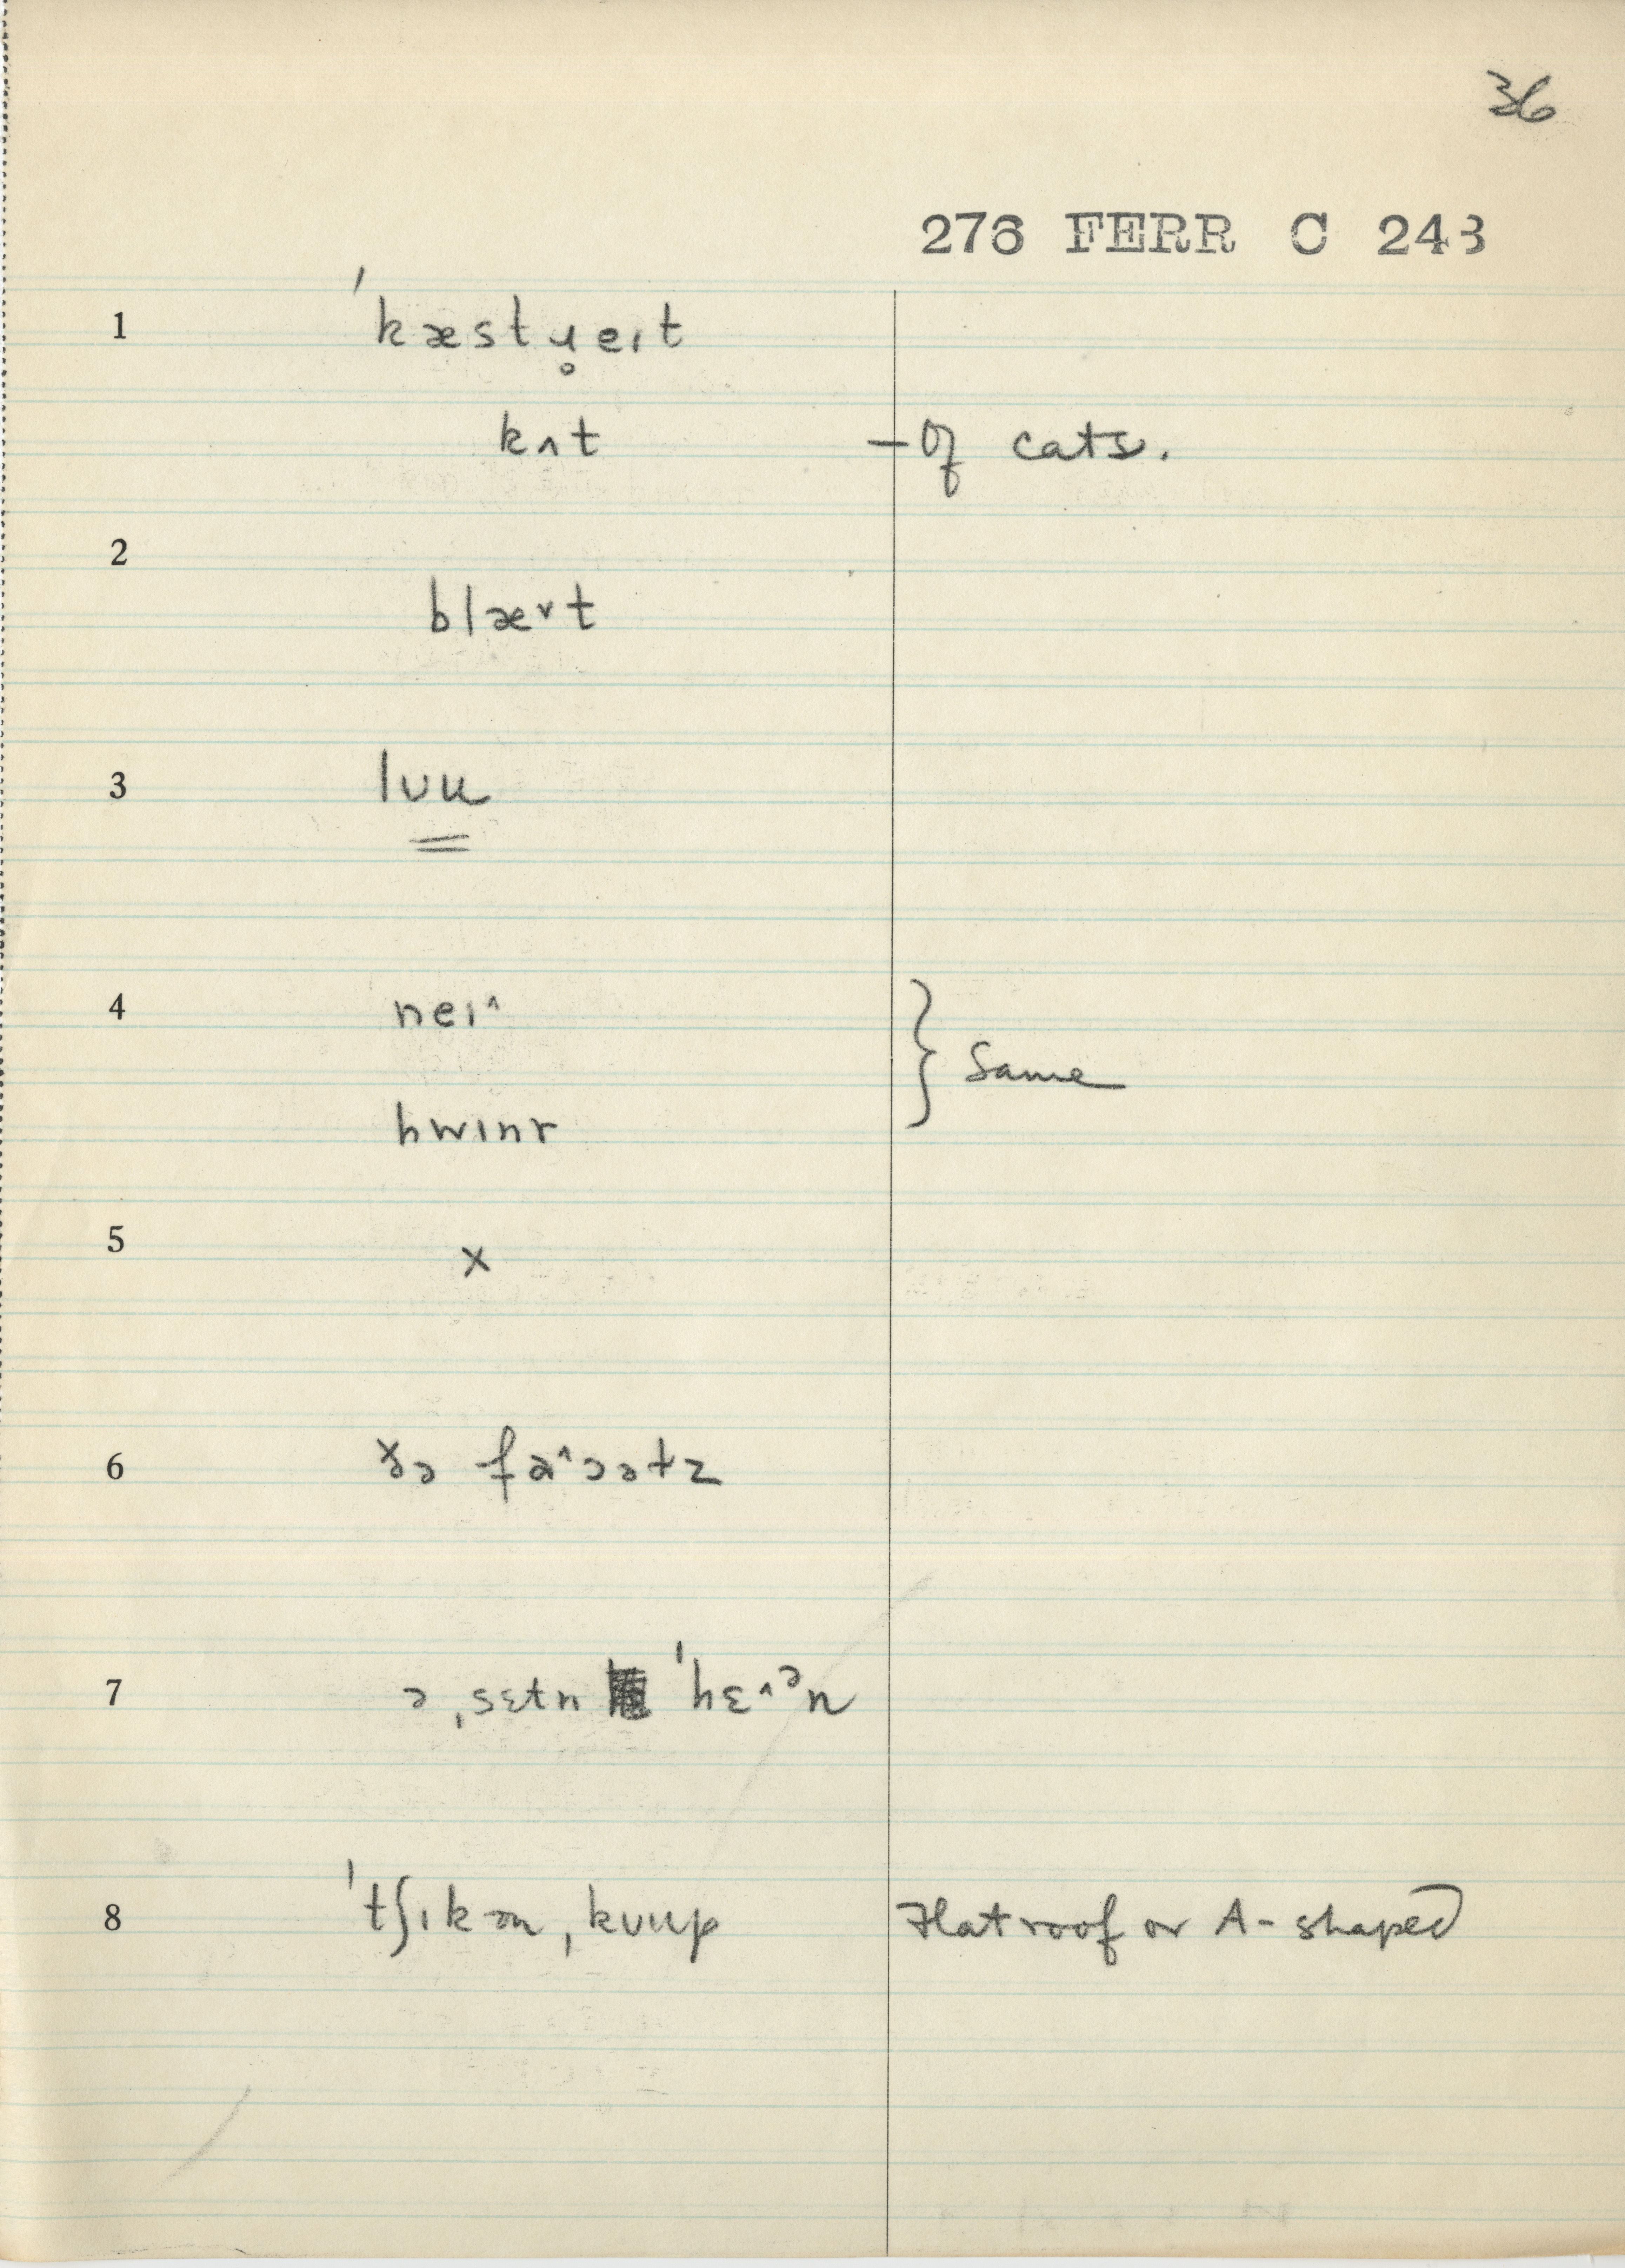 36
276 FERR C 243
1 ˈkæstɹ̥eɪt
kʌt – Of cats.
2
blæ˅t
3 lʊu
4 neɪ^ } Same
hwɪnɪ
5 x
6 ðə fa^ɔətz
7 ə ˌsɛtn ˈhɛ^ᵊn
8 ˈtʃɪkən ˌkʊup Flat roof or A-shaped